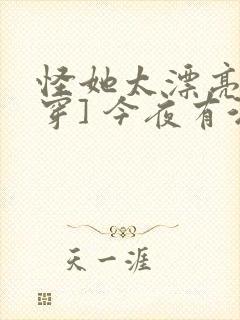 怪她太漂亮
穿] 今夜有
天一涯